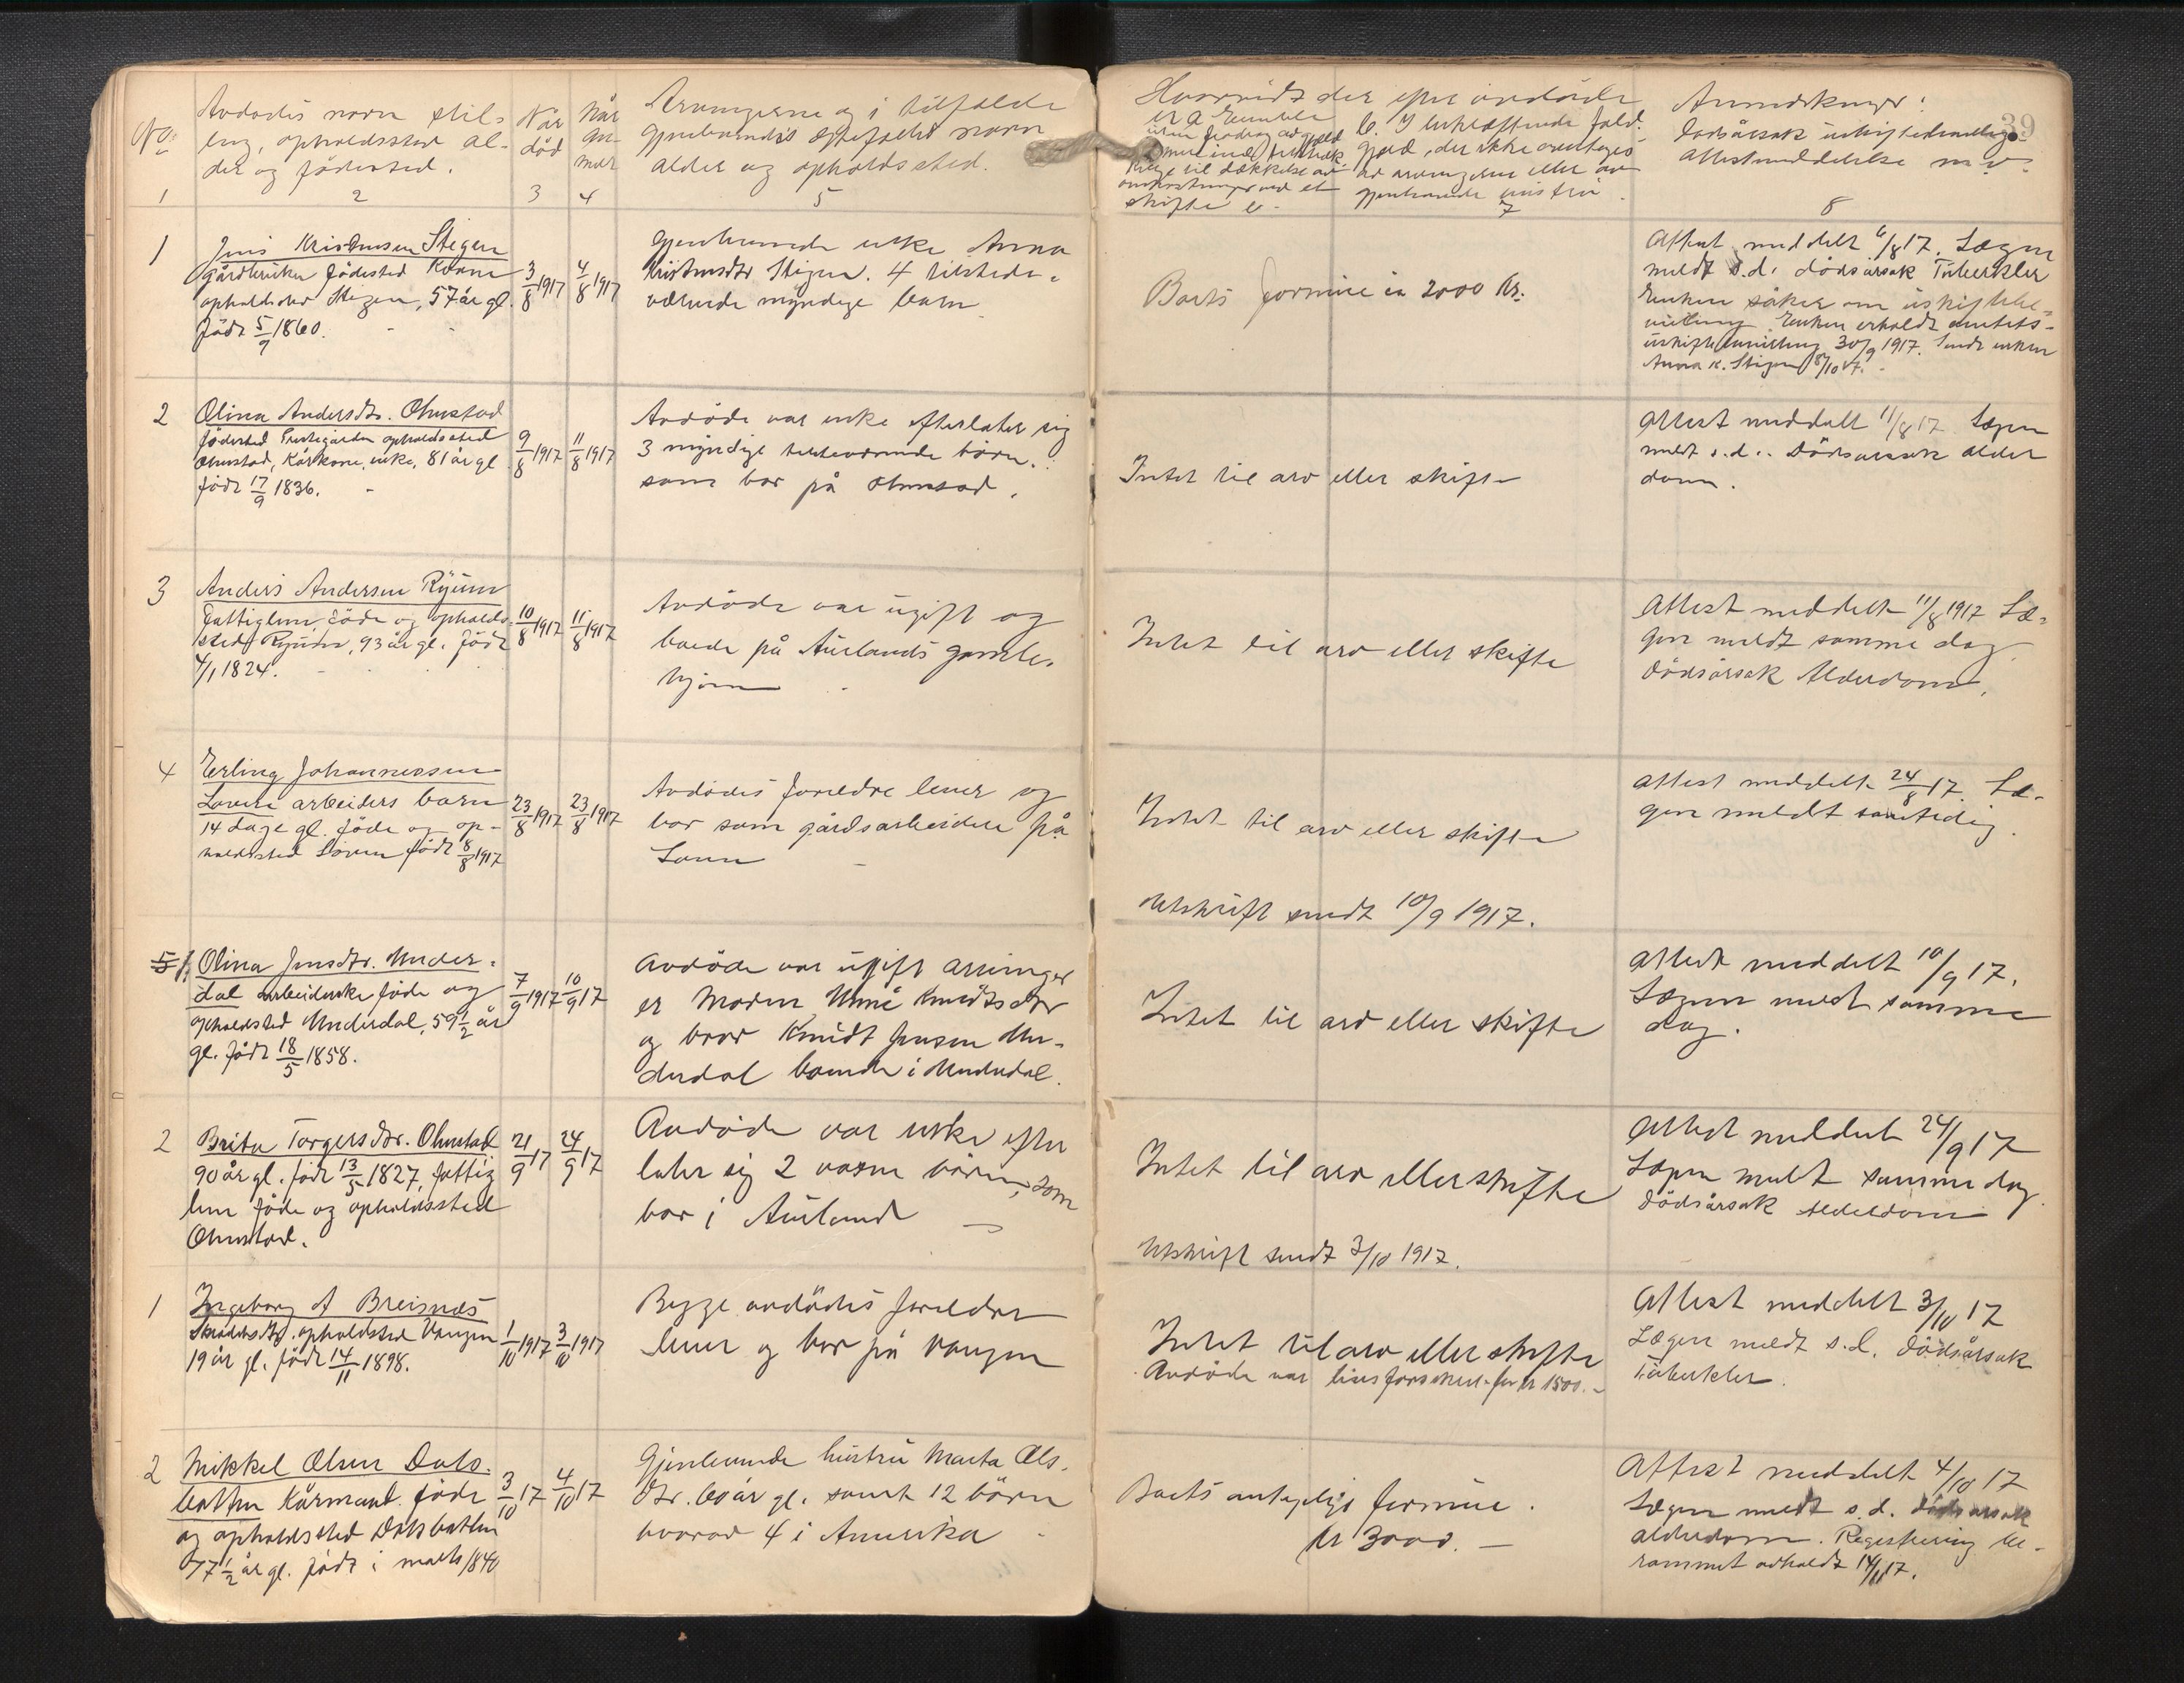 39
No.
Avdødes navn stil-
ling, opholdssted al-
der og fødested.
Når
død
Når
an-
Arvingerne og i tilfælde
gjenlevendes egtefælles navn
alder og opholdssted.
Hvorvidt der efter avdøde
er a
b. I bekræftende fald.
gjæld, der ikke overtages
av arvingerne eller av
gjenlevende
skifte
Anmerkninger:
Dødsårsak uskiftebevilling
attestmeddelelse m.v.
1
2
3
4
5
7
8
1
Jens Kristensen Stegen
gårdbruker fødested
opholdssted Stegen, 57 år gl.
født 5/9 1860.
3/8 1917
4/8 1917
Gjenlevende enke Anna
Kristensdtr Stegen. 4 tilstede-
værende myndige barn
Boets formue ca 2000 Kr.
Attest meddelt 6/8 17. Lægen
meldt s.d. dødsårsak Tuberkler
Enken søker om uskiftebe-
villing. Enken erholdt amtets
uskiftebevilling 30/9 1917. Sendt enken
Anna K. Stegen 8/10 17.
2
Olina Andersdtr. Ohnstad
fødested Prestegården opholdssted
Ohnstad, Kårkone, enke, 81 år gl
født 17/9 1836.
9/8 1917
11/8 1917
Avdøde var enke efterlater sig
3 myndige tilstevørende børn.
som bor på Ohnstad.
Intet til arv eller skifte
Attest meddelt 11/8 17 Lægen
meldt s.d.. Dødsårsak alder
dom.
3
Anders Andersen Ryum
Fattiglem, føde og opholds-
sted Ryum, 93 år gl. født
4/1 1824.
10/8 1917
11/8 1917
Avdøde var ugift og
boede på Aurlands gamle-
hjem
Intet til arv eller skifte
Attest meddelt 11/8 1917 Læ-
gen meldt samme dag
dødsårsak Alderdom.
4
Erling Johannessen
Loven arbeiders barn
14 dage gl. føde og op-
holdssted Loven født 8/8 1917
23/8 1917
23/8 1917
Avdødes forældre lever og
bor som gårdsarbeidere på
Loven
Intet til arv eller skifte
Attest meddelt 24/8 17. Læ-
gen meldt samtidig.
Utskrift sendt 10/9 1917.
5 1.
Olina Jensdtr. Under-
dal arbeiderske føde og
opholdssted Underdal, 59 1/2 år
gl. født 18/5 1858.
7/9 1917
10/9 17
Avdøde var ugift arvinger
er Moren Unni Knudtsdtr
og bror Knudt Jensen Un-
derdal boende i Underdal.
Intet til arv eller skifte
Attest meddelt 10/9 17.
Lægen meldt samme
dag.
2
Brita Torgersdtr. Ohnstad
90 år gl. født 13/5 1827, fattig
lem føde og opholdssted
Ohnstad.
21/9 17
24/9 17
Avdøde var enke efter
later sig 2 voxne børn, som
bor i Aurland
Intet til arv eller skifte
Attest meddelt 24/9 17
Lægen meldt samme dag.
Dødsårsak Alderdom
Utskrift sendt 3/10 1917.
1
Ingeborg A Breisnes
opholdssted Vangen
19 år gl. født 14/11 1898.
1/10 1917
3/10 1917
Begge avdødes forældre
lever og bor på Vangen
Intet til arv eller skifte
Avdøde var livsforsikret for kr 1500.-
Attest meddelt 3/10 17
Lægen meldt s.d. dødsårsak
Tuberkler.
2
Mikkel Olsen Dals-
botten Kårmand. føde
og opholdssted Dalsbotten
77 1/2 år gl. født i marts 1840
3/10 17
4/10 17
Gjenlevende hustru Marta Ols-
dtr. 60 år gl. samt 12 børn
hvorav 4 i Amerika
Boets antagelige formue.
kr 3000. —
Attest meddelt 4/10 17
Lægen meldt s.d. dødsårsak
alderdom. Registrering be-
rammet avholdt 14/11 17.